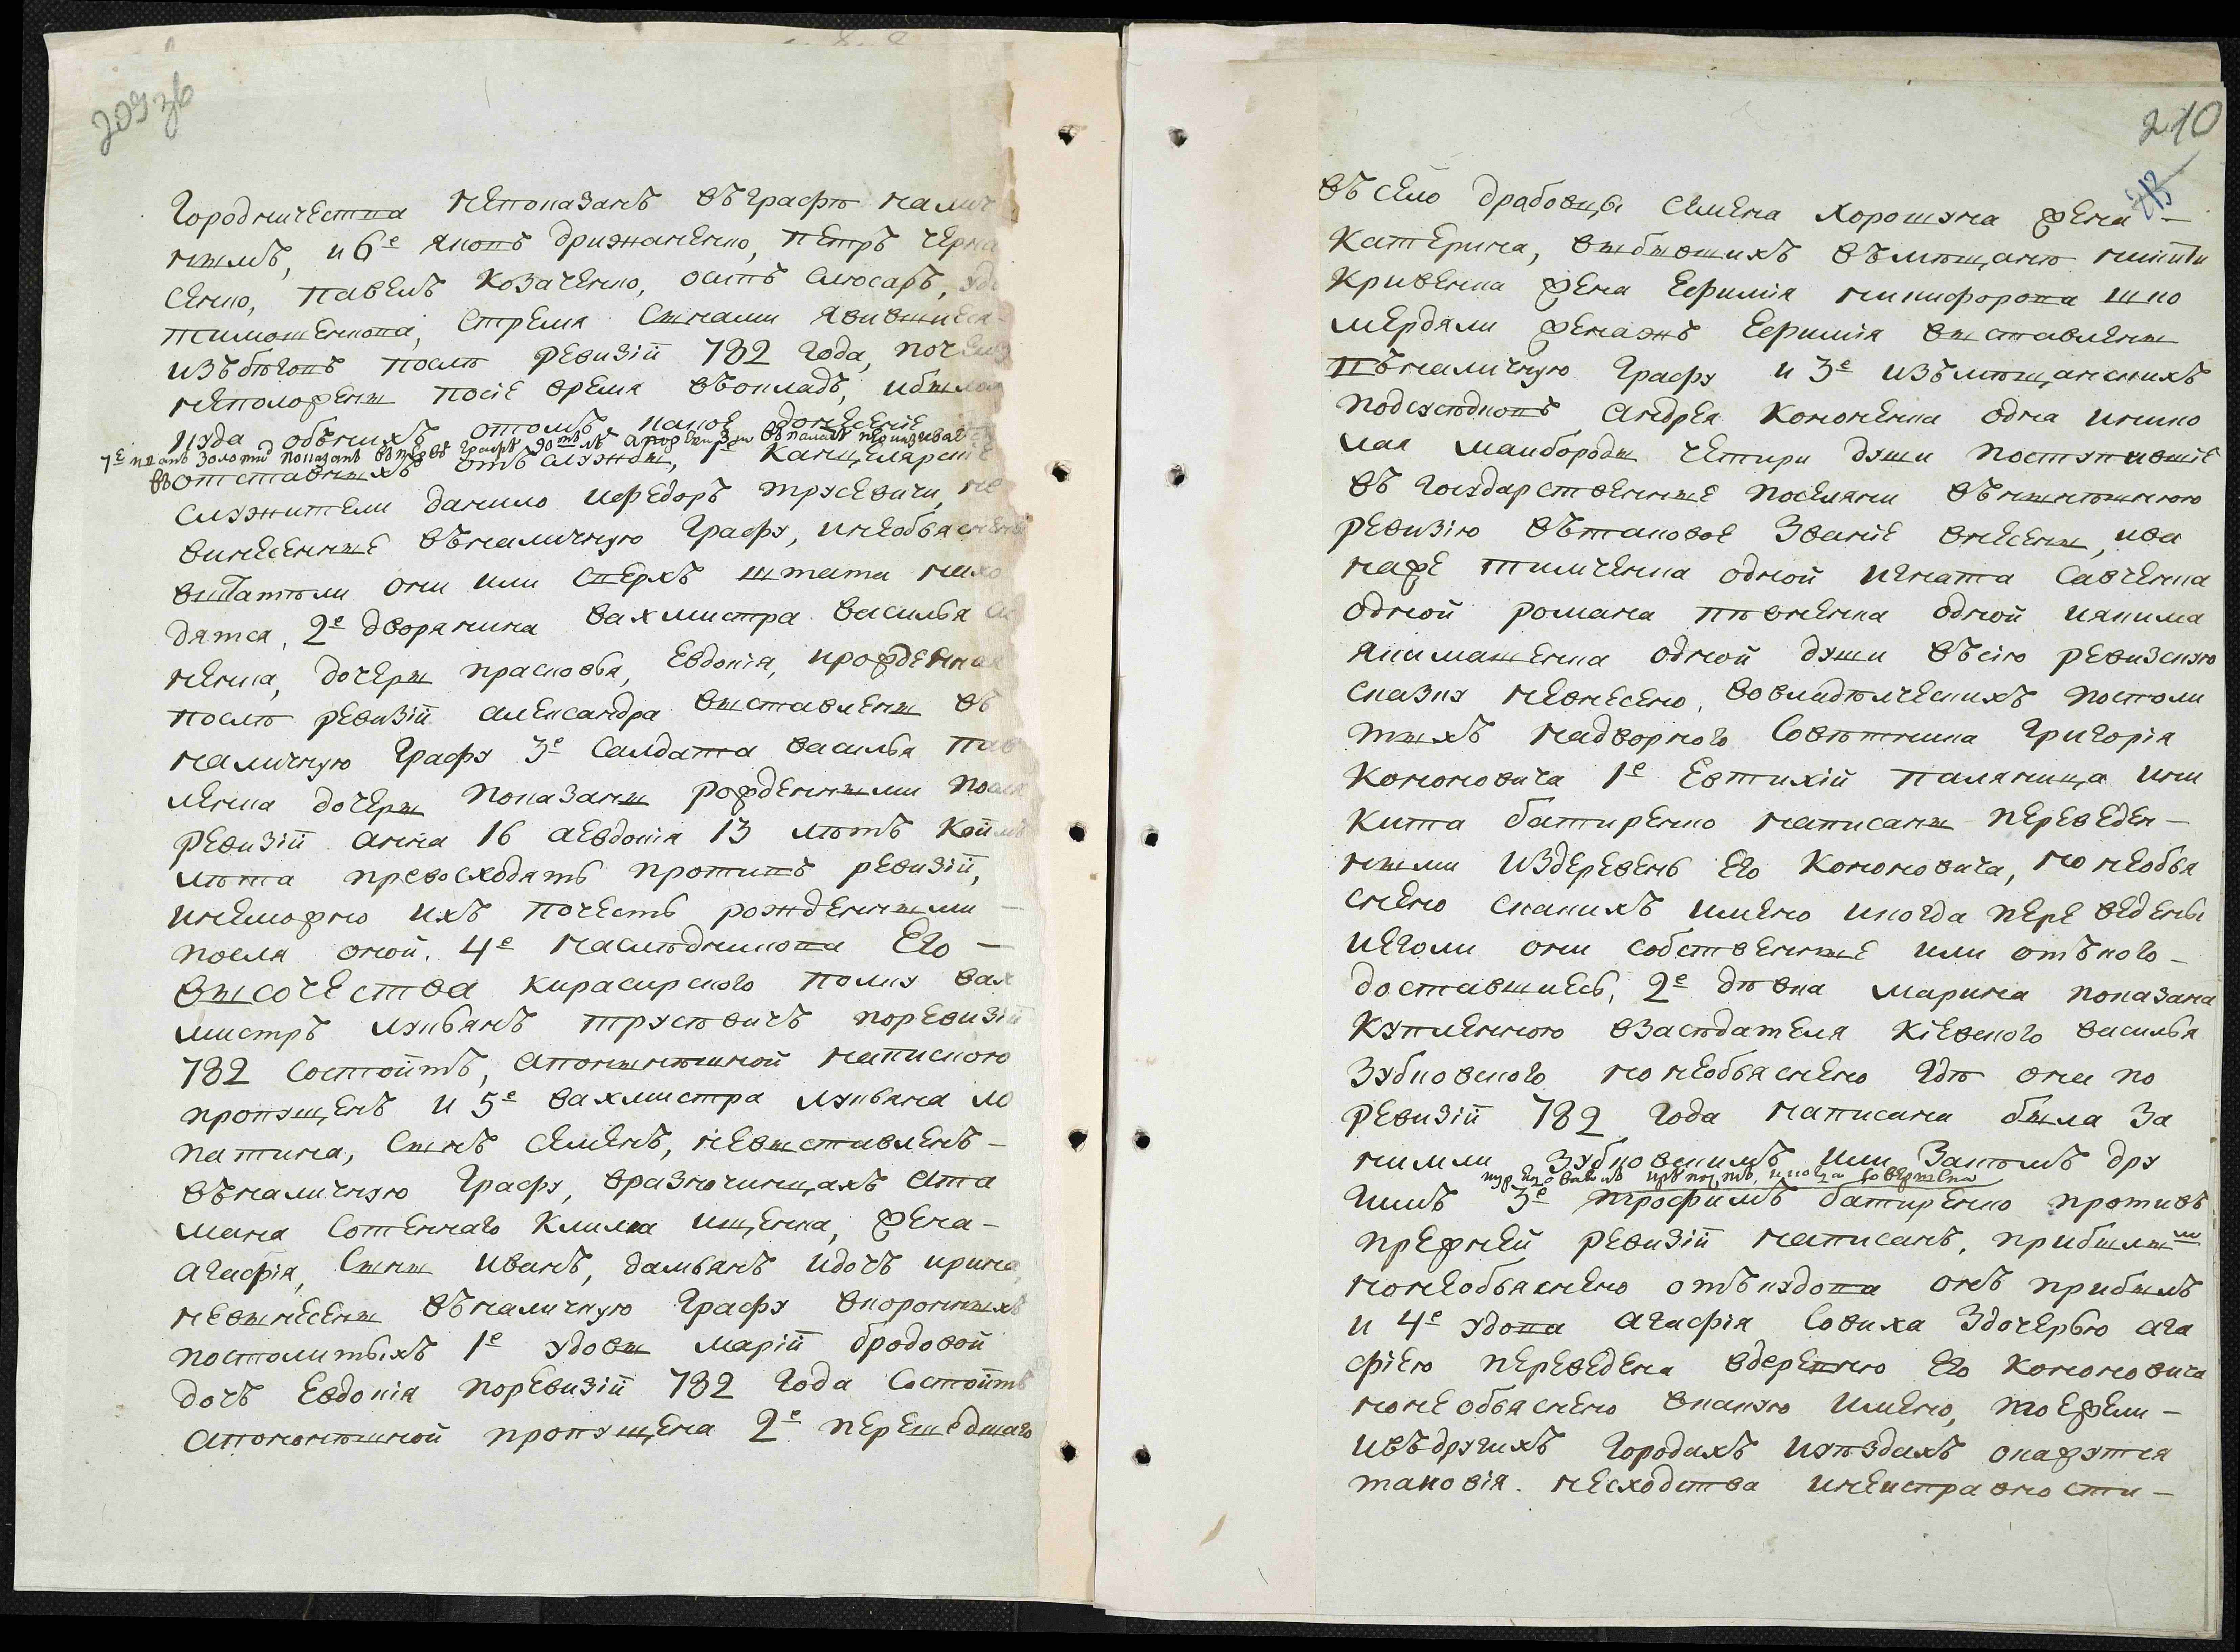 209 зв
городничества непоказанъ въграфѣ налич
нымъ, и 6е яковъ дрижаченко, петръ черна
сенко, павелъ козаченко, осипъ слюсаръ,
тимошенкова, стрема сынами явившиеся
изъбѣговъ послѣ ревизіи 782 года, почему
неположены посіе время въокладъ, ибыло
куда объ нихъ отомъ какое донесеніе
7е иванъ золото показанъ въ графѣ 90
воотставныхъ отъслужбы, 1е канцелярскіе
служители данило ифедоръ трусевичи, не
внесенные въналичную графу, инеобъяснено
вштатѣли они или сверхъ штата нахо
дятся, 2е дворянина вахмистра василья
ненка, дочеры прасковья, Евдокія, ирожденная
послѣ ревизіи александра выставлены въ
наличную графу 3е салдата василья пав
ленка дочеры показаны рожденными посля
ревизіи анна 16 аевдокія 13 лѣтъ коихъ
лѣта превосходятъ противъ ревизіи,
инеможно ихъ почесть рожденными –
посля оной. 4е наслѣдникова Его –
высочества кирасирского полку вах
мистръ лукьянъ трусевичъ поревизіи
782 состоитъ, апонынѣшной напискою
пропущенъ и 5е вахмистра лукьяна ло
патина, сынъ семенъ, невыставленъ –
въналичную графу, вразночинцахъ ата
мана сотенного клима ищенка, жена –
агафія, сыны иванъ, дамьянъ идочь ирина,
невнесены въналичную графу вкоронныхъ
посполитыхъ 1е удовы маріи бродовой
дочь Евдокія поревизіи 782 года состоитъ
апонынѣшной пропущена 2е перешедшаго
210
въ село драбовцы семена хорошуна жена –
катерина, выбывшихъ въмѣщане никити
кривенка жена Ефимія никифорова
мердяли женажъ Ефимія выставлены
въналичную графу и 3е изъмѣщанскихъ
подсусѣдковъ андрея кононенка одна
лая манбороды четири души поступившіе
въ государственные поселяни въ нынѣшнюю
ревизію въ таковое званіе внесены, ива
наже тимченка одной игната савченка
одной романа пѣвненка одной иякима
якимашенка одной души въсію ревизскую
сказку невнесено. вовладѣлческихъ посполи
тыхъ надворного совѣтника григорія
кононовича 1е Евтихій паляница ини
кита батиренко написаны переведен –
ными издеревень его кононовича, но необъя
снено скакихъ имено икогда переведены
иеголи они собственные или отъкого –
доставшиесь, 2е дѣвка марина показана
купленною взасѣдателя кіевского василья
зубковского но необъяснено гдѣ она по
ревизіи 782 года написана была за
нимли зубковскимъ или закѣмъ дру
гимъ 3е трофимъ батиренко противъ
прежней ревизіи написанъ, прибылым
нонеобъяснено отъкудова онъ прибылъ
и 4е удова агафія совиха здочерью ага
фіею переведена вдеревню его кононовича
нонеобъяснено вкакую имено, тоежели –
ивъдругихъ городахъ иуѣздахъ окажутся
таковія. несходства инеисправности –